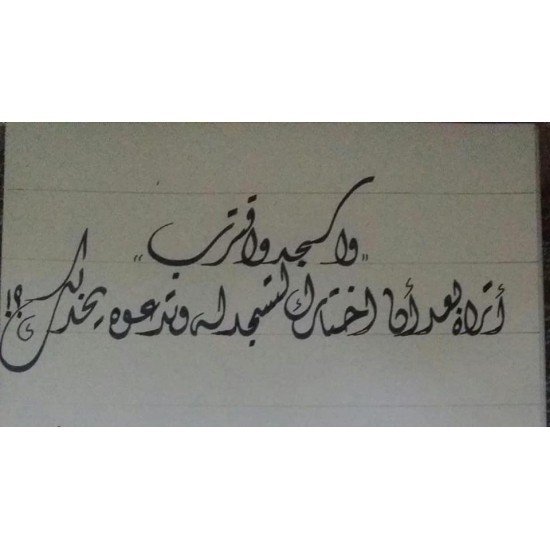 "واسجد واقترب"
أتراه بعد أن اختارك لتسجد له وتدعوه يخذلك؟!